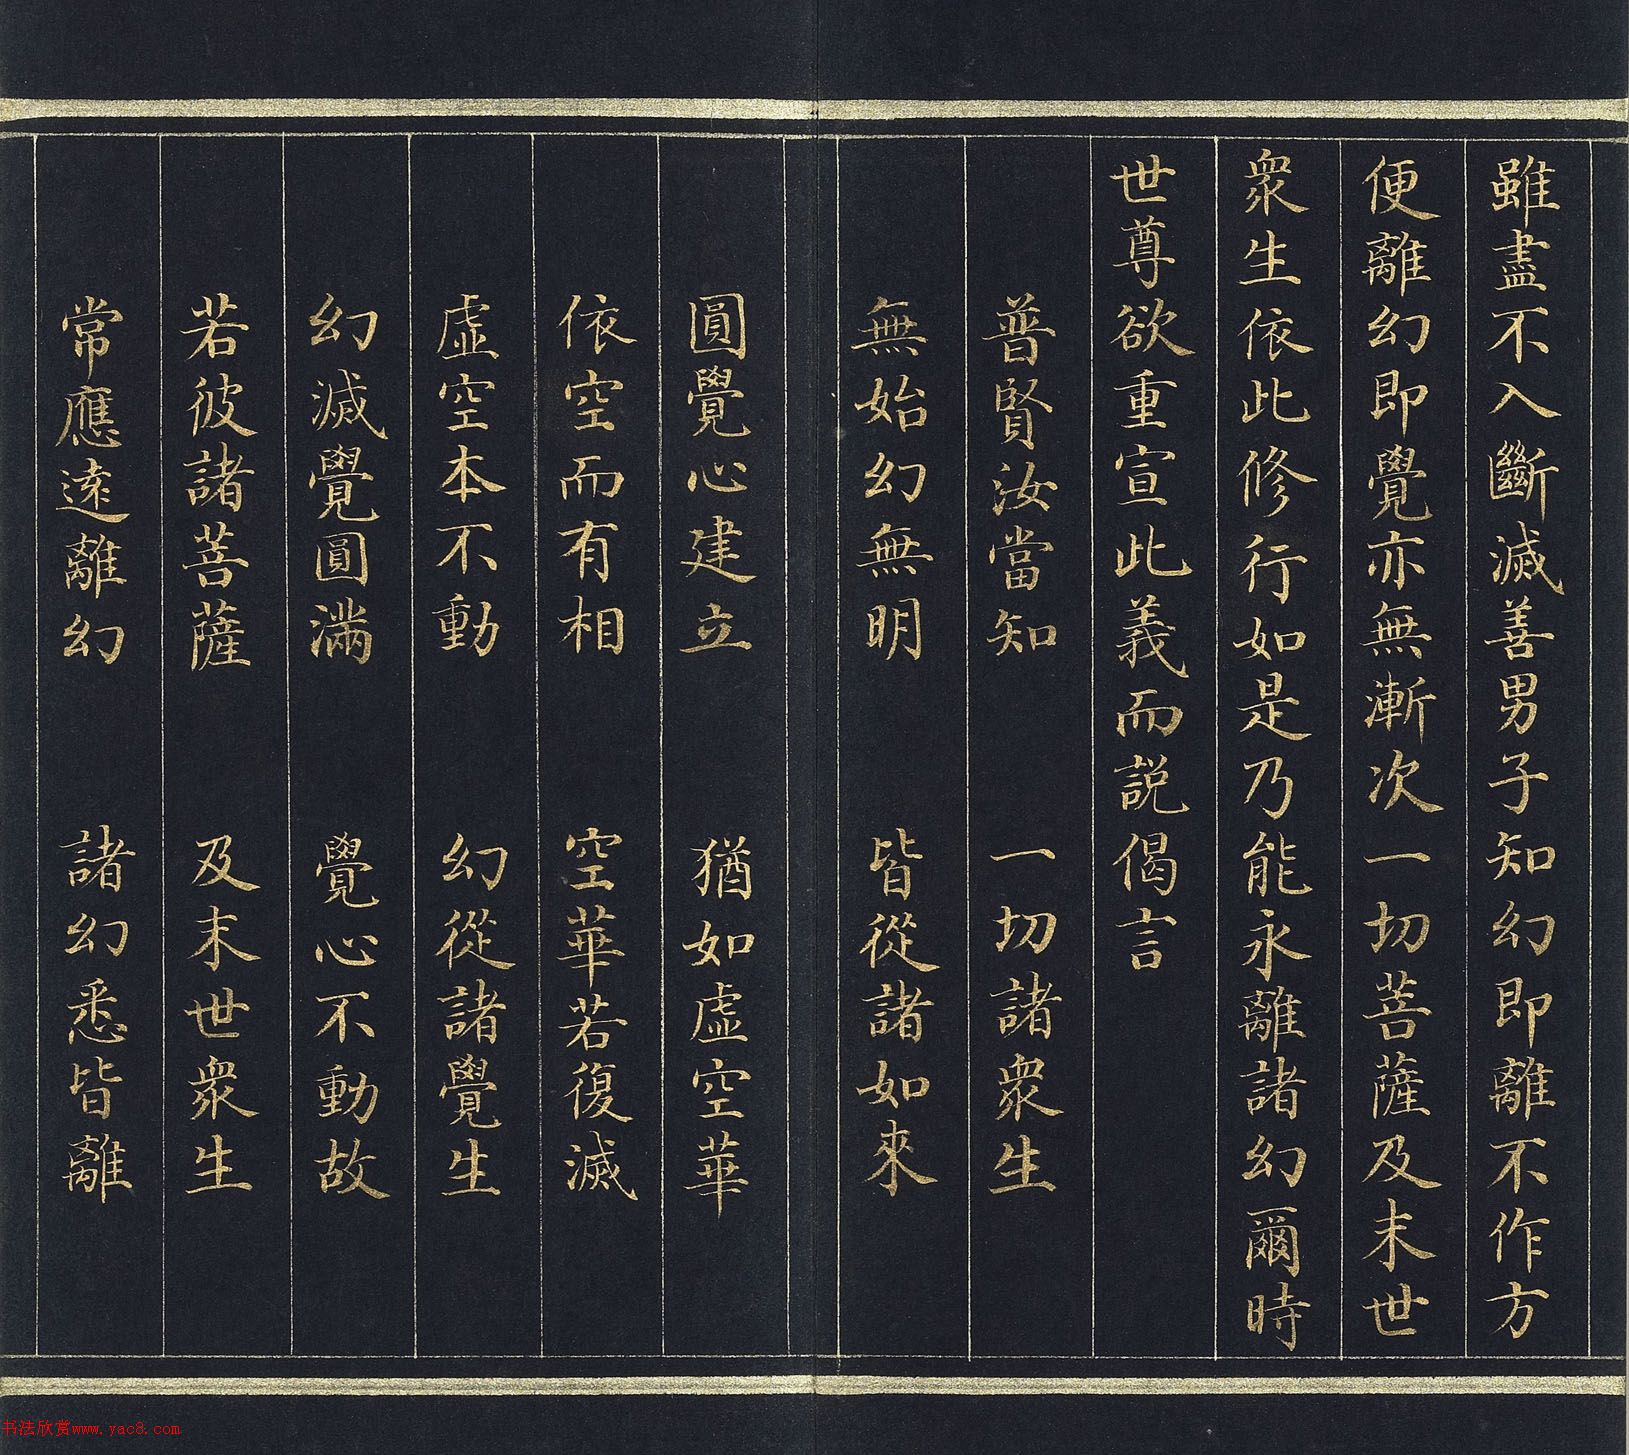 雖盡不入斷滅善男子知幻即離不作方
便離幻即覺亦無漸次一切菩薩及末世
衆生依此修行如是乃能永離諸幻爾時
世尊欲重宣此義而説偈言
普賢汝當知　一切諸衆生
無始幻無明　皆從諸如來
圓覺心建立　猶如虛空華
依空而有相　空華若復滅
虛空本不動　幻從諸覺生
幻滅覺圓滿　覺心不動故
若彼諸菩薩　及末世衆生
常應遠離幻　諸幻悉皆離
书法欣赏www.yac8.com